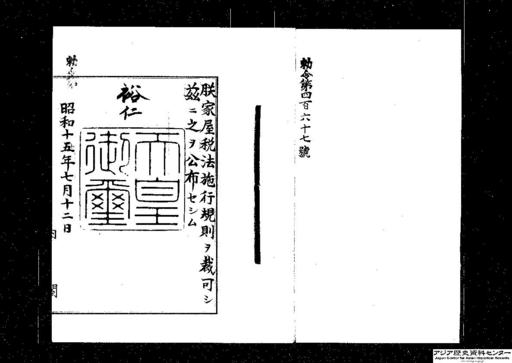 勅令第四百六十七號
朕家屋税法施行規則ヲ裁可シ
茲ニ之ヲ公布セシム
裕仁
天皇
御璽
昭和十五年七月十二日
内
閣
アジア歴史資料センター
Japan Center for Asian Historical Records